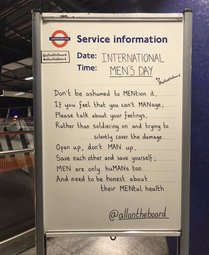 UNDERGROUND
Service information
@allontheboard
@allontheboard
Date: INTERNATIONAL
Time: MEN'S DAY
@allontheboard
Don't be ashamed to MENtion it,
If you feel that you can't MANage;
Please talk about your feelings,
Rather than soldiering on and trying to
silently cover the damage.
Open up, don't MAN up,
Save each other and save yourself;
MEN are only huMANs too
And need to be honest about
their MENtal health.
@allontheboard